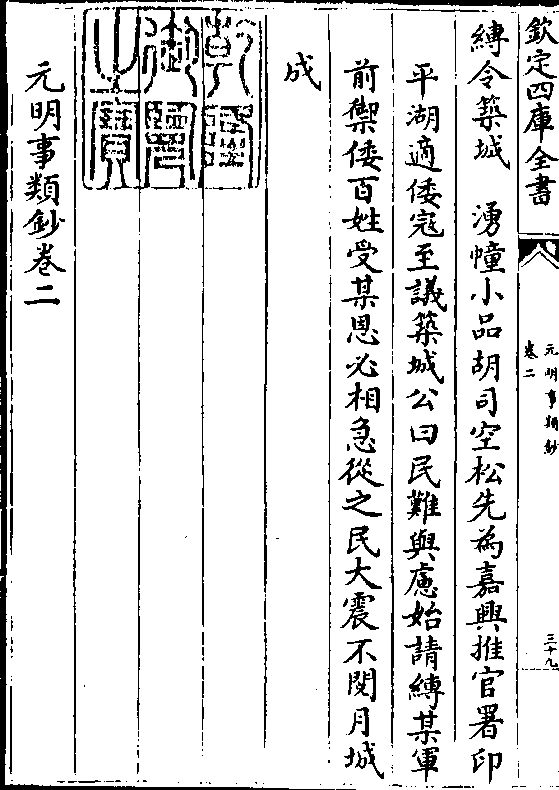 欽定四庫全書
元明事類鈔
卷二
三十九
縛令築城　湧幢小品胡司空松先為嘉興推官署印
平湖適倭寇至議築城公曰民難與慮始請縛某軍
前禦倭百姓受某恩必相急從之民大震不閱月城
成
乾隆御覽之寶
元明事類鈔卷二